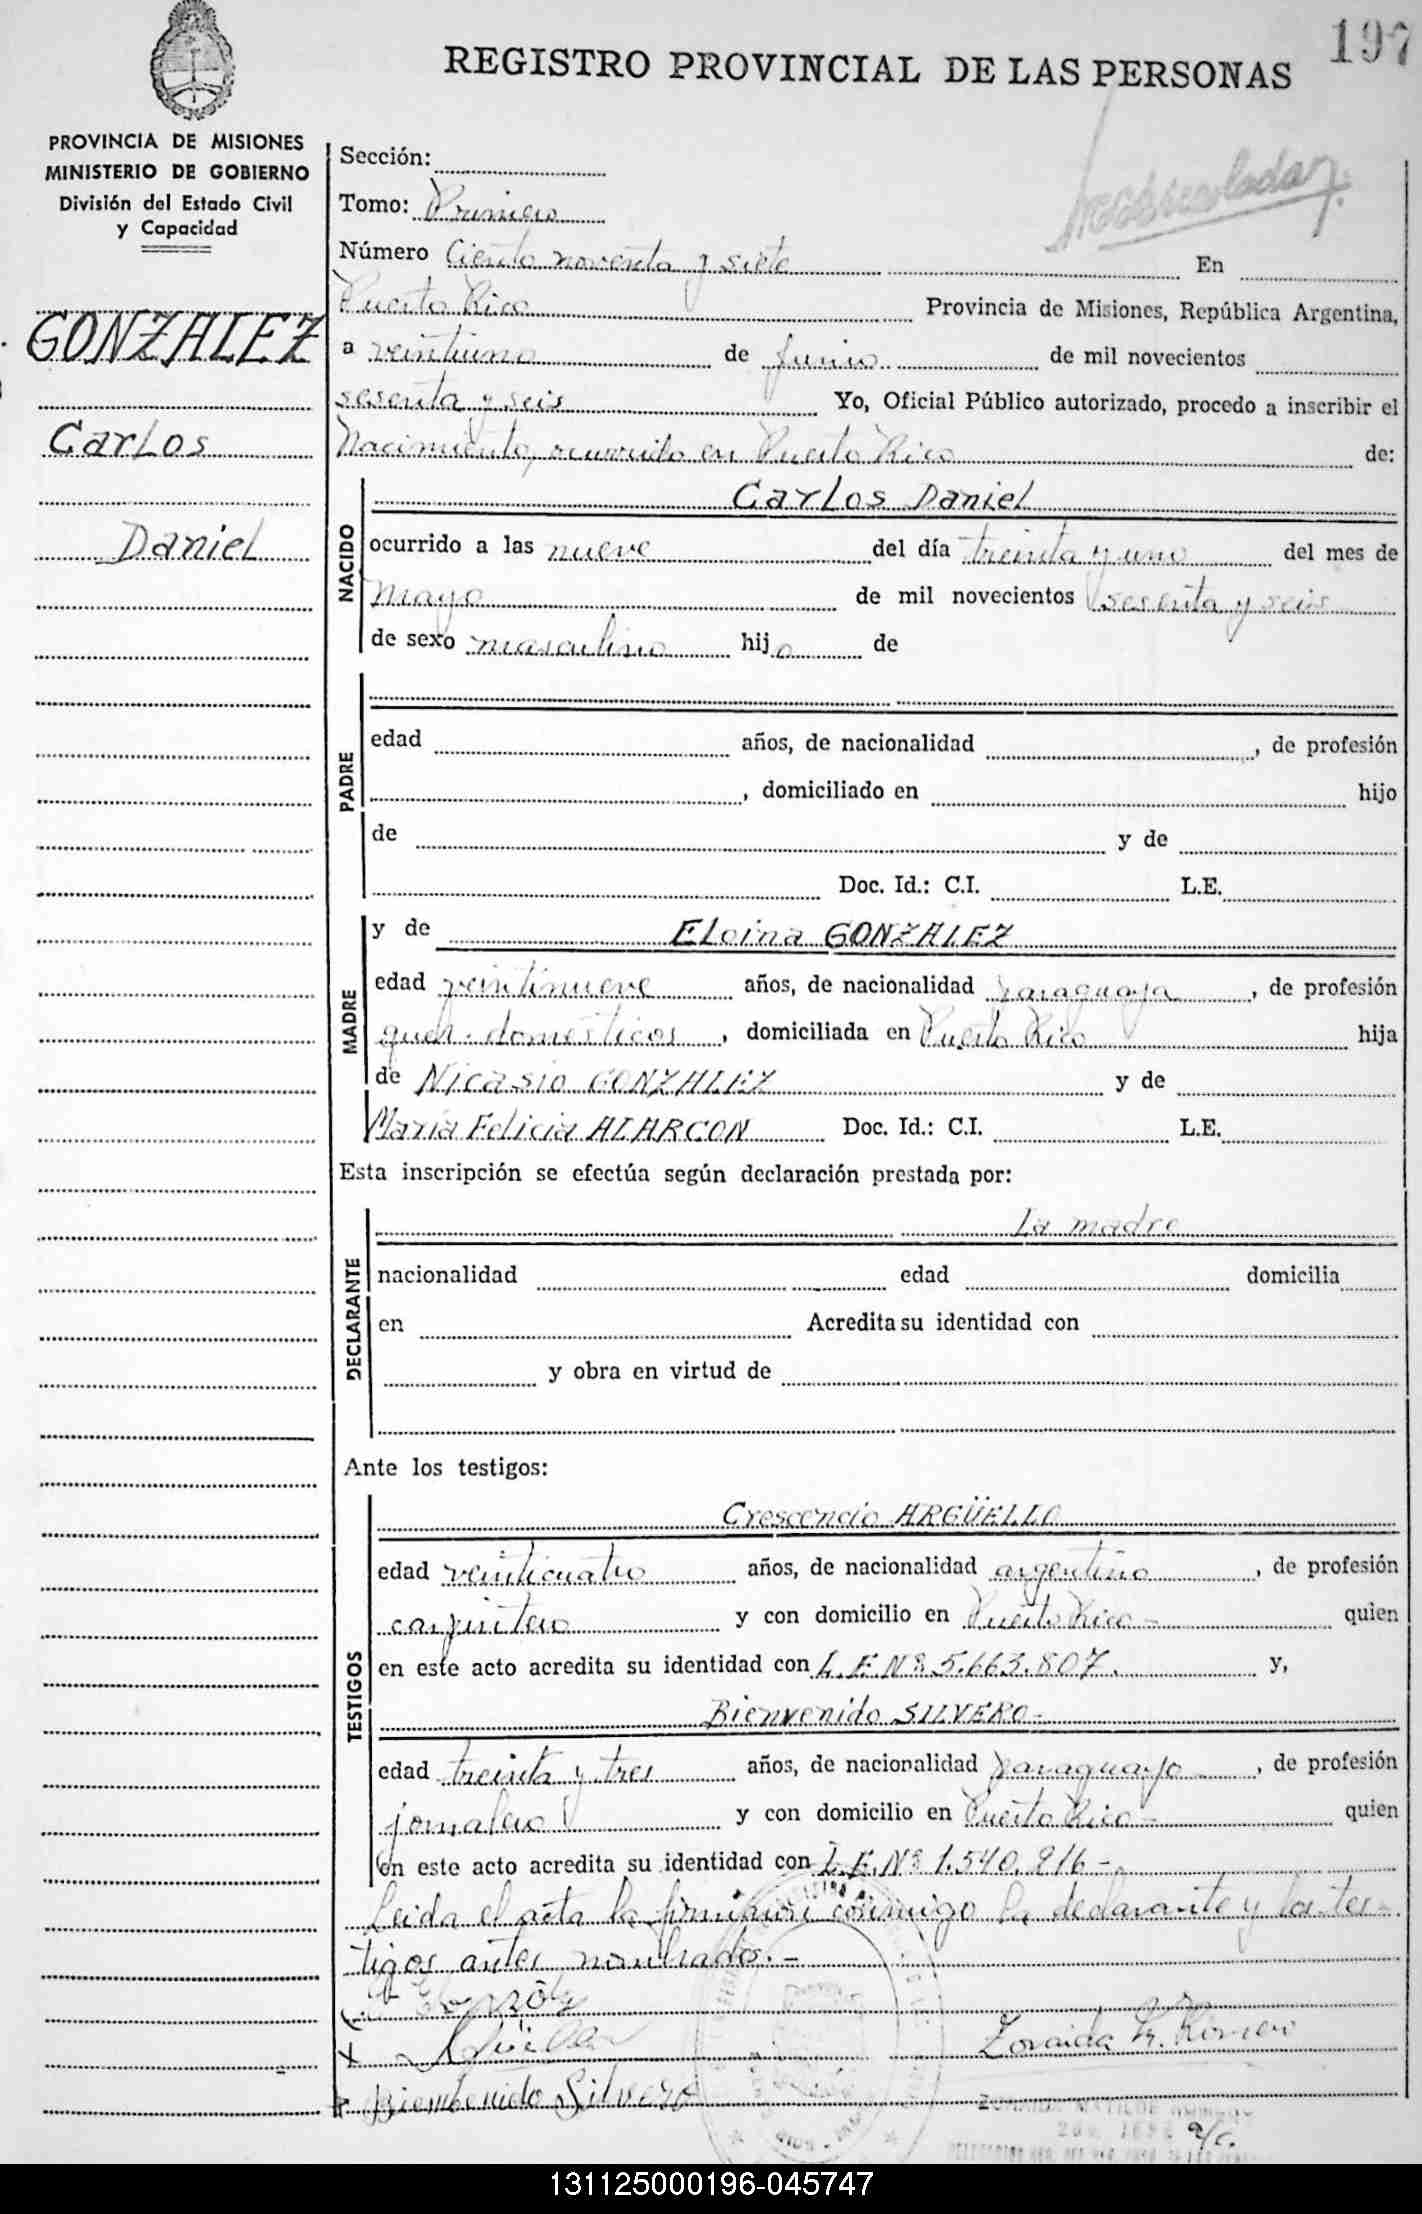 197
REGISTRO PROVINCIAL DE LAS PERSONAS
PROVINCIA DE MISIONES
MINISTERIO DE GOBIERNO
División del Estado Civil
y Capacidad
GONZALEZ
Carlos
Daniel
Sección:
Tomo: Primero
Número Ciento noventa y siete En
Puerto Rico Provincia de Misiones, República Argentina,
a veintiuno de Junio de mil novecientos
sesenta y seis Yo, Oficial Público autorizado, procedo a inscribir el
Nacimiento, ocurrido en Puerto Rico de:
NACIDO
Carlos Daniel
ocurrido a las nueve del día treinta y uno del mes de
Mayo de mil novecientos sesenta y seis
de sexo masculino hijo de
PADRE
edad años, de nacionalidad , de profesión
, domiciliado en hijo
de y de
Doc. Id.: C.I. L.E.
MADRE
y de Eloina GONZALEZ
edad veintinueve años, de nacionalidad paraguaya , de profesión
queh. domésticos , domiciliada en Puerto Rico hija
de Nicasio GONZALEZ y de
María Felicia ALARCON Doc. Id.: C.I. L.E.
Esta inscripción se efectúa según declaración prestada por:
DECLARANTE
La madre
nacionalidad edad domicilia
en Acredita su identidad con
y obra en virtud de
Ante los testigos:
TESTIGOS
Crescencio ARGÜELLO
edad veinticuatro años, de nacionalidad argentino , de profesión
carpintero y con domicilio en Puerto Rico - quien
en este acto acredita su identidad con L.E.Nº 5.663.807. y,
Bienvenido SILVERO-
edad treinta y tres años, de nacionalidad paraguayo , de profesión
jornalero y con domicilio en Puerto Rico - quien
en este acto acredita su identidad con L.E.Nº 1.540.216-
Leida el acta la firmaron conmigo la declarante y los tes-
tigos antes nombrados.-
Zoraida M. Romero
Biembenido Silvero
ZORAIDA MATILDE ROMERO
a/c.
131125000196-045747